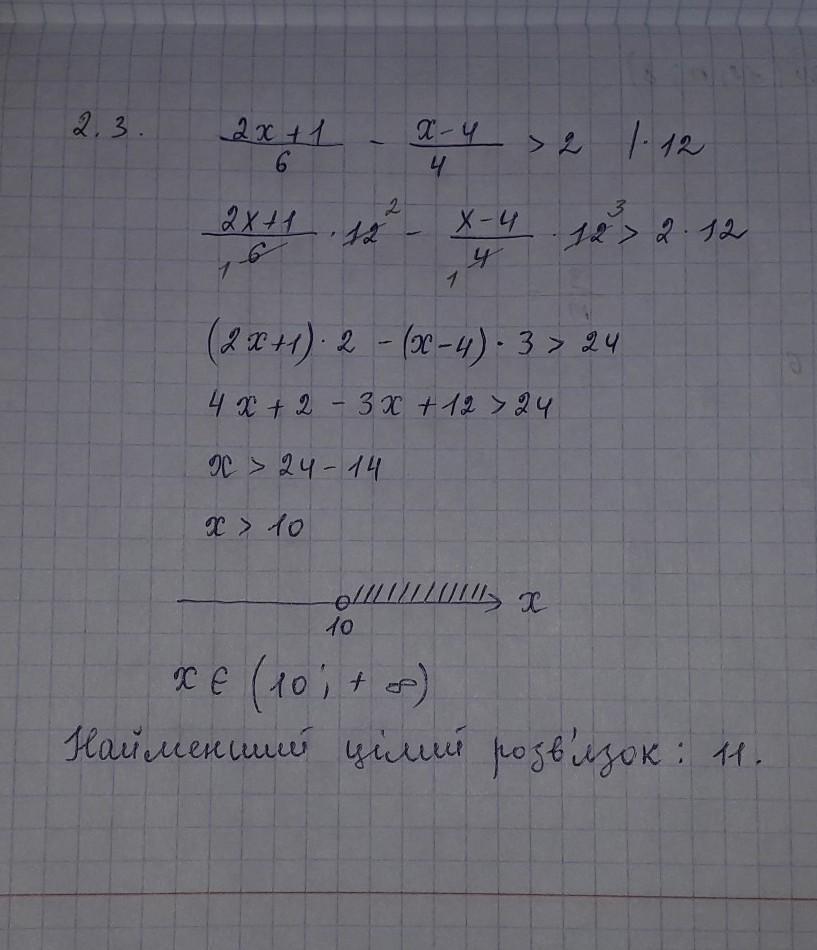 2.3. (2x+1)/6 - (x-4)/4 > 2 |·12
(2x+1)/6 1 · 12 2 - (x-4)/4 1 · 12 3 > 2·12
(2x+1)·2 -(x-4)·3 > 24
4x+2-3x+12>24
x > 24-14
x > 10
10 x
x є (10; +∞)
Найменший цілий розв'язок: 11.